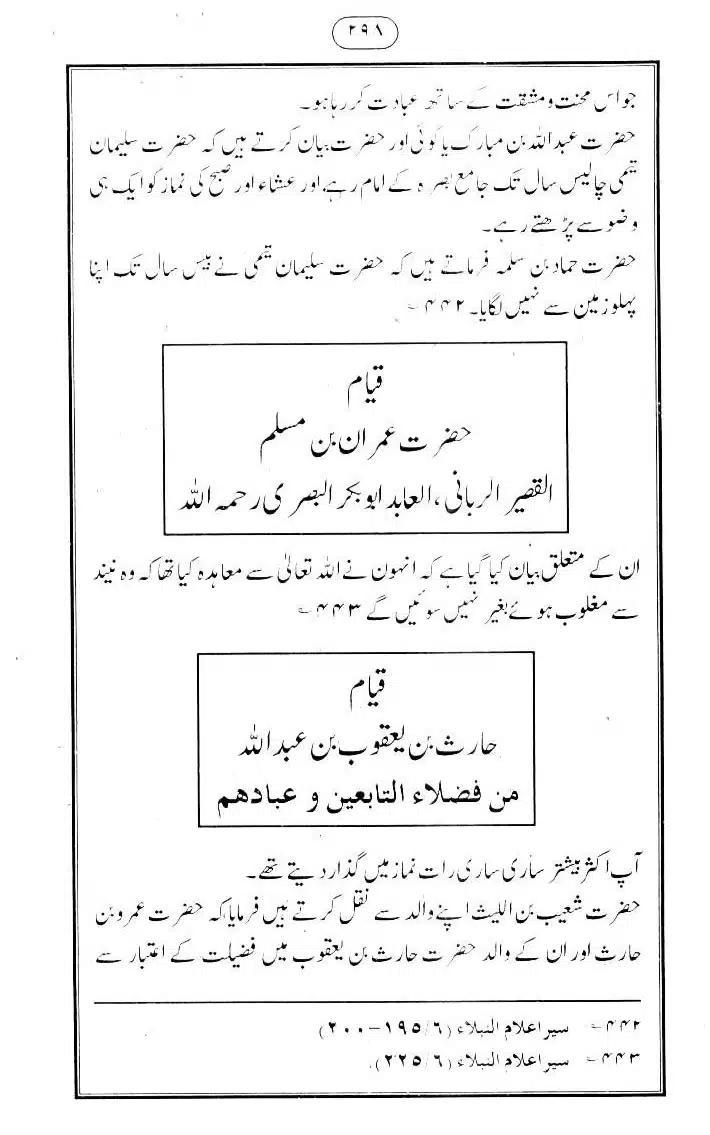 ۲۹۱
جو اس محنت و مشقت کے ساتھ عبادت کر رہا ہو۔
حضرت عبداللہ بن مبارک یا کوئی اور حضرت بیان کرتے ہیں کہ حضرت سلیمان
تیمی چالیس سال تک جامع بصرہ کے امام رہے اور عشاء اور صبح کی نماز کو ایک ہی
وضو سے پڑھتے رہے۔
حضرت حماد بن سلمہ فرماتے ہیں کہ حضرت سلیمان تیمی نے بیس سال تک اپنا
پہلو زمین سے نہیں لگایا۔ ۴۴۲؎
قیام
حضرت عمران بن مسلم
القصیر الربانی، العابد ابوبکر البصری رحمہ اللہ
ان کے متعلق بیان کیا گیا ہے کہ انہون نے اللہ تعالیٰ سے معاہدہ کیا تھا کہ وہ نیند
سے مغلوب ہوئے بغیر نہیں سوئیں گے ۴۴۳؎
قیام
حارث بن یعقوب بن عبداللہ
من فضلاء التابعین و عبادھم
آپ اکثر بیشتر ساری ساری رات نماز میں گذار دیتے تھے۔
حضرت شعیب بن اللیث اپنے والد سے نقل کرتے ہیں فرمایا کہ حضرت عمرو بن
حارث اور ان کے والد حضرت حارث بن یعقوب میں فضیلت کے اعتبار سے
۴۴۲؎ سیر اعلام النبلاء (۶/۱۹۵–۲۰۰)
۴۴۳؎ سیر اعلام النبلاء (۶/۲۲۵).